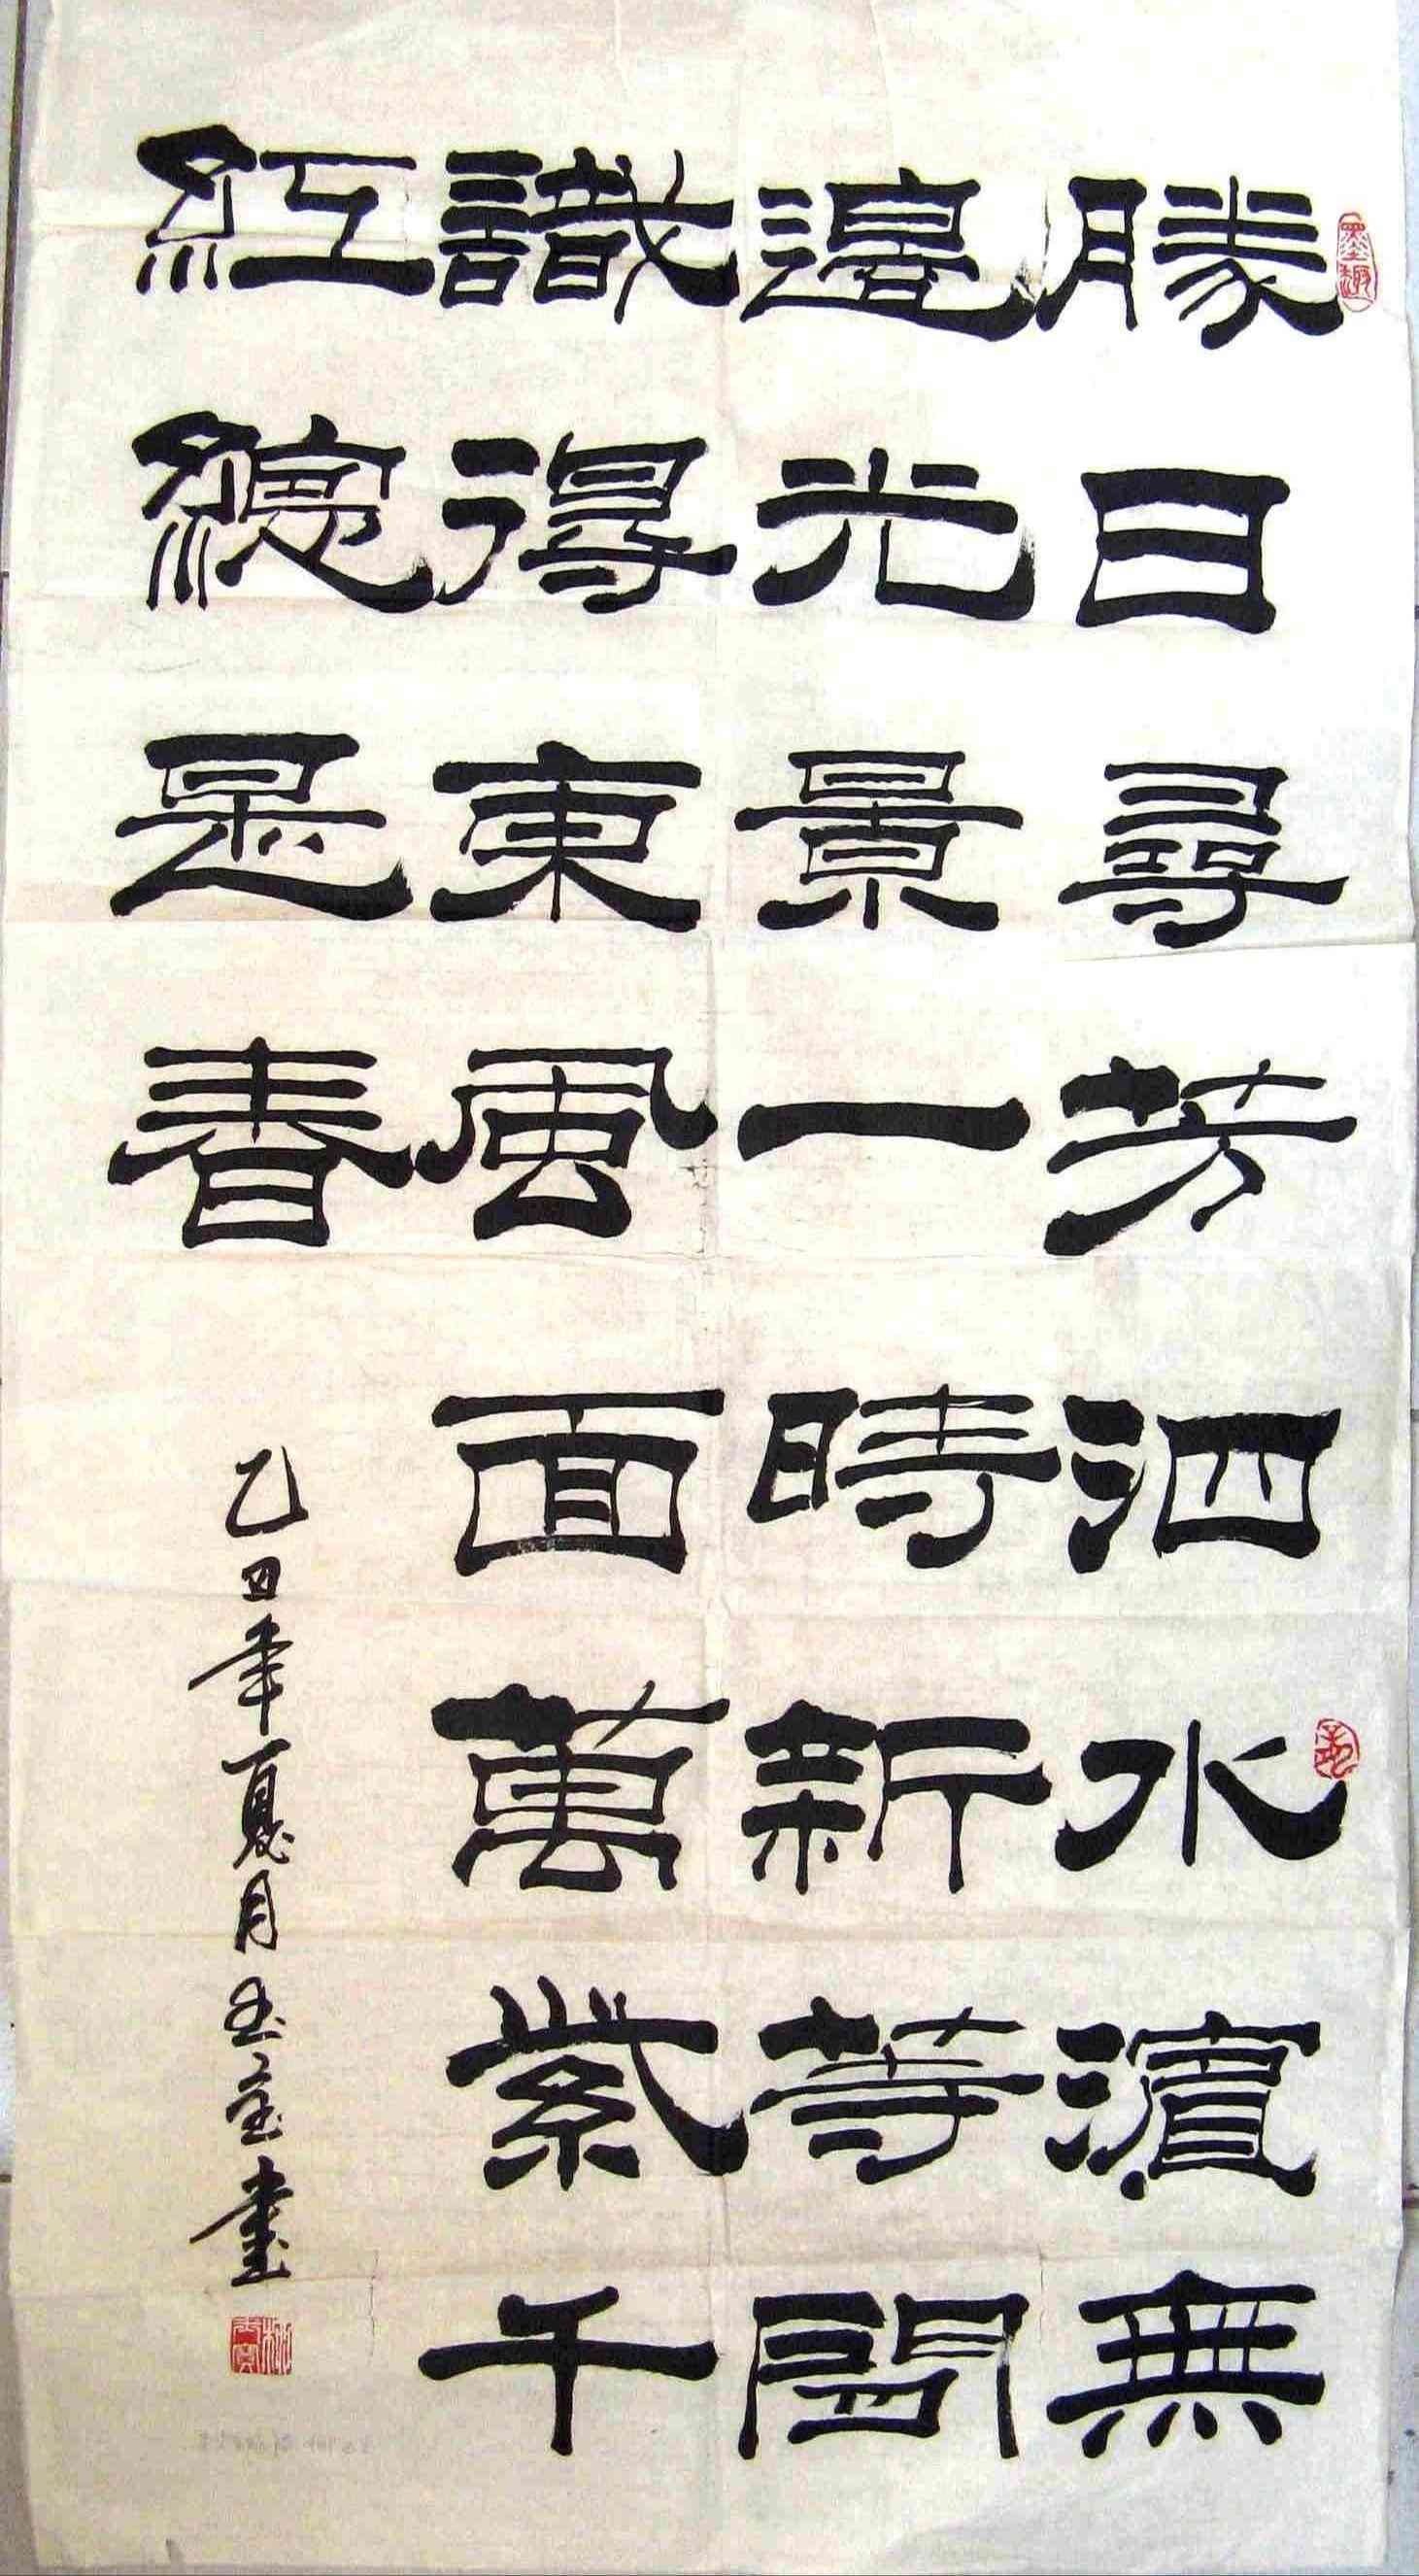 勝日尋芳泗水濱無
邊光景一時新等閒
識得東風面萬紫千
紅總是春
乙丑年夏月玉書
墨趣